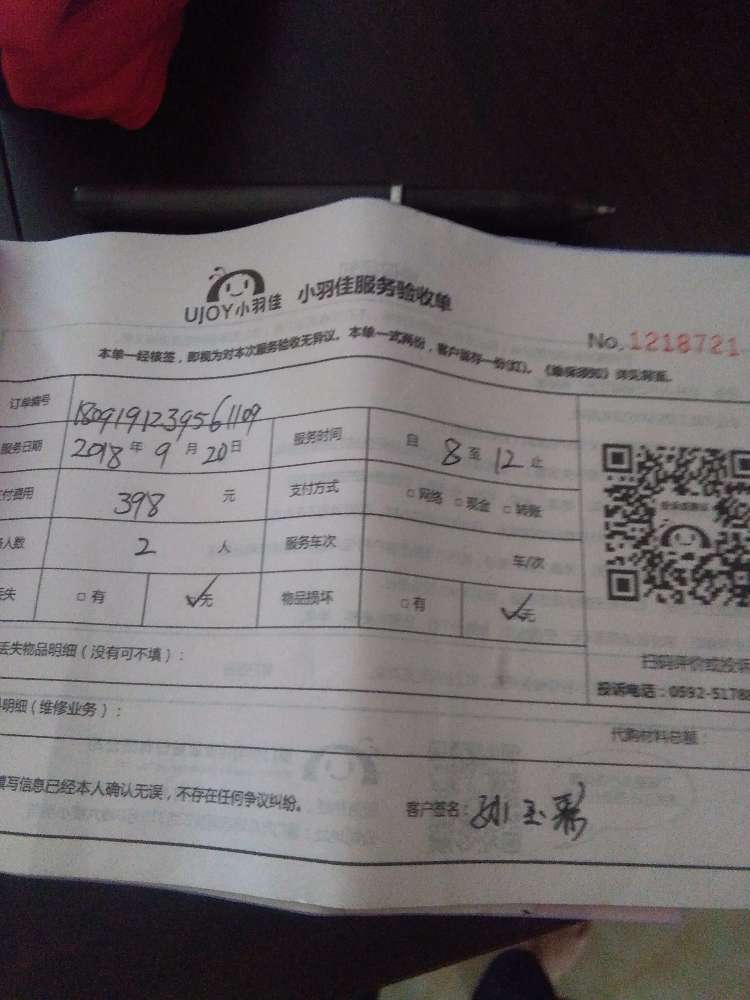 UJOY小羽佳 小羽佳服务验收单
No. 1218721
本单一经核签，即视为对本次服务验收无异议。本单一式两份，客户留存一份(红)。《维保须知》详见背面。
订单编号 1809191239561109
服务日期 2018 年 9 月 20 日 服务时间 自 8 至 12 止
付费用 398 元 支付方式 □网络 □现金 □转账
人数 2 人 服务车次 车/次
失 □有 ✓无 物品损坏 □有 ✓无
扫码评价或投诉
丢失物品明细（没有可不填）：
投诉电话：0592-51788
明细（维修业务）： 代购材料总额：
填写信息已经本人确认无误，不存在任何争议纠纷。 客户签名：孙玉彩